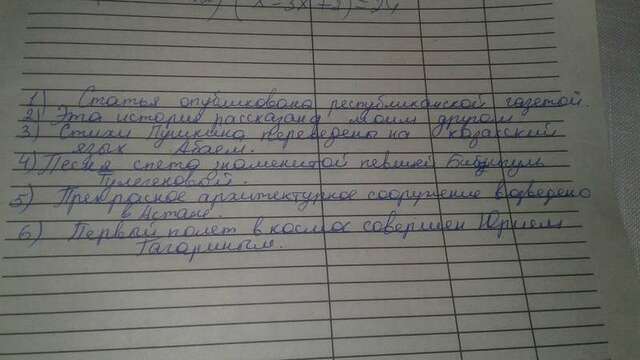 (x²-3x+2)=24
1) Статья опубликована республиканской газетой.
2) Эта история рассказана моим другом
3) Стихи Пушкина переведены на казахский
язык Абаем.
4) Песня спета знаменитой певшей Бибигуль
Тулегеновой.
5) Прекрасное архитектурное сооружение возведено
в Астане.
6) Первый полет в космос совершен Юрием
Гагариным.